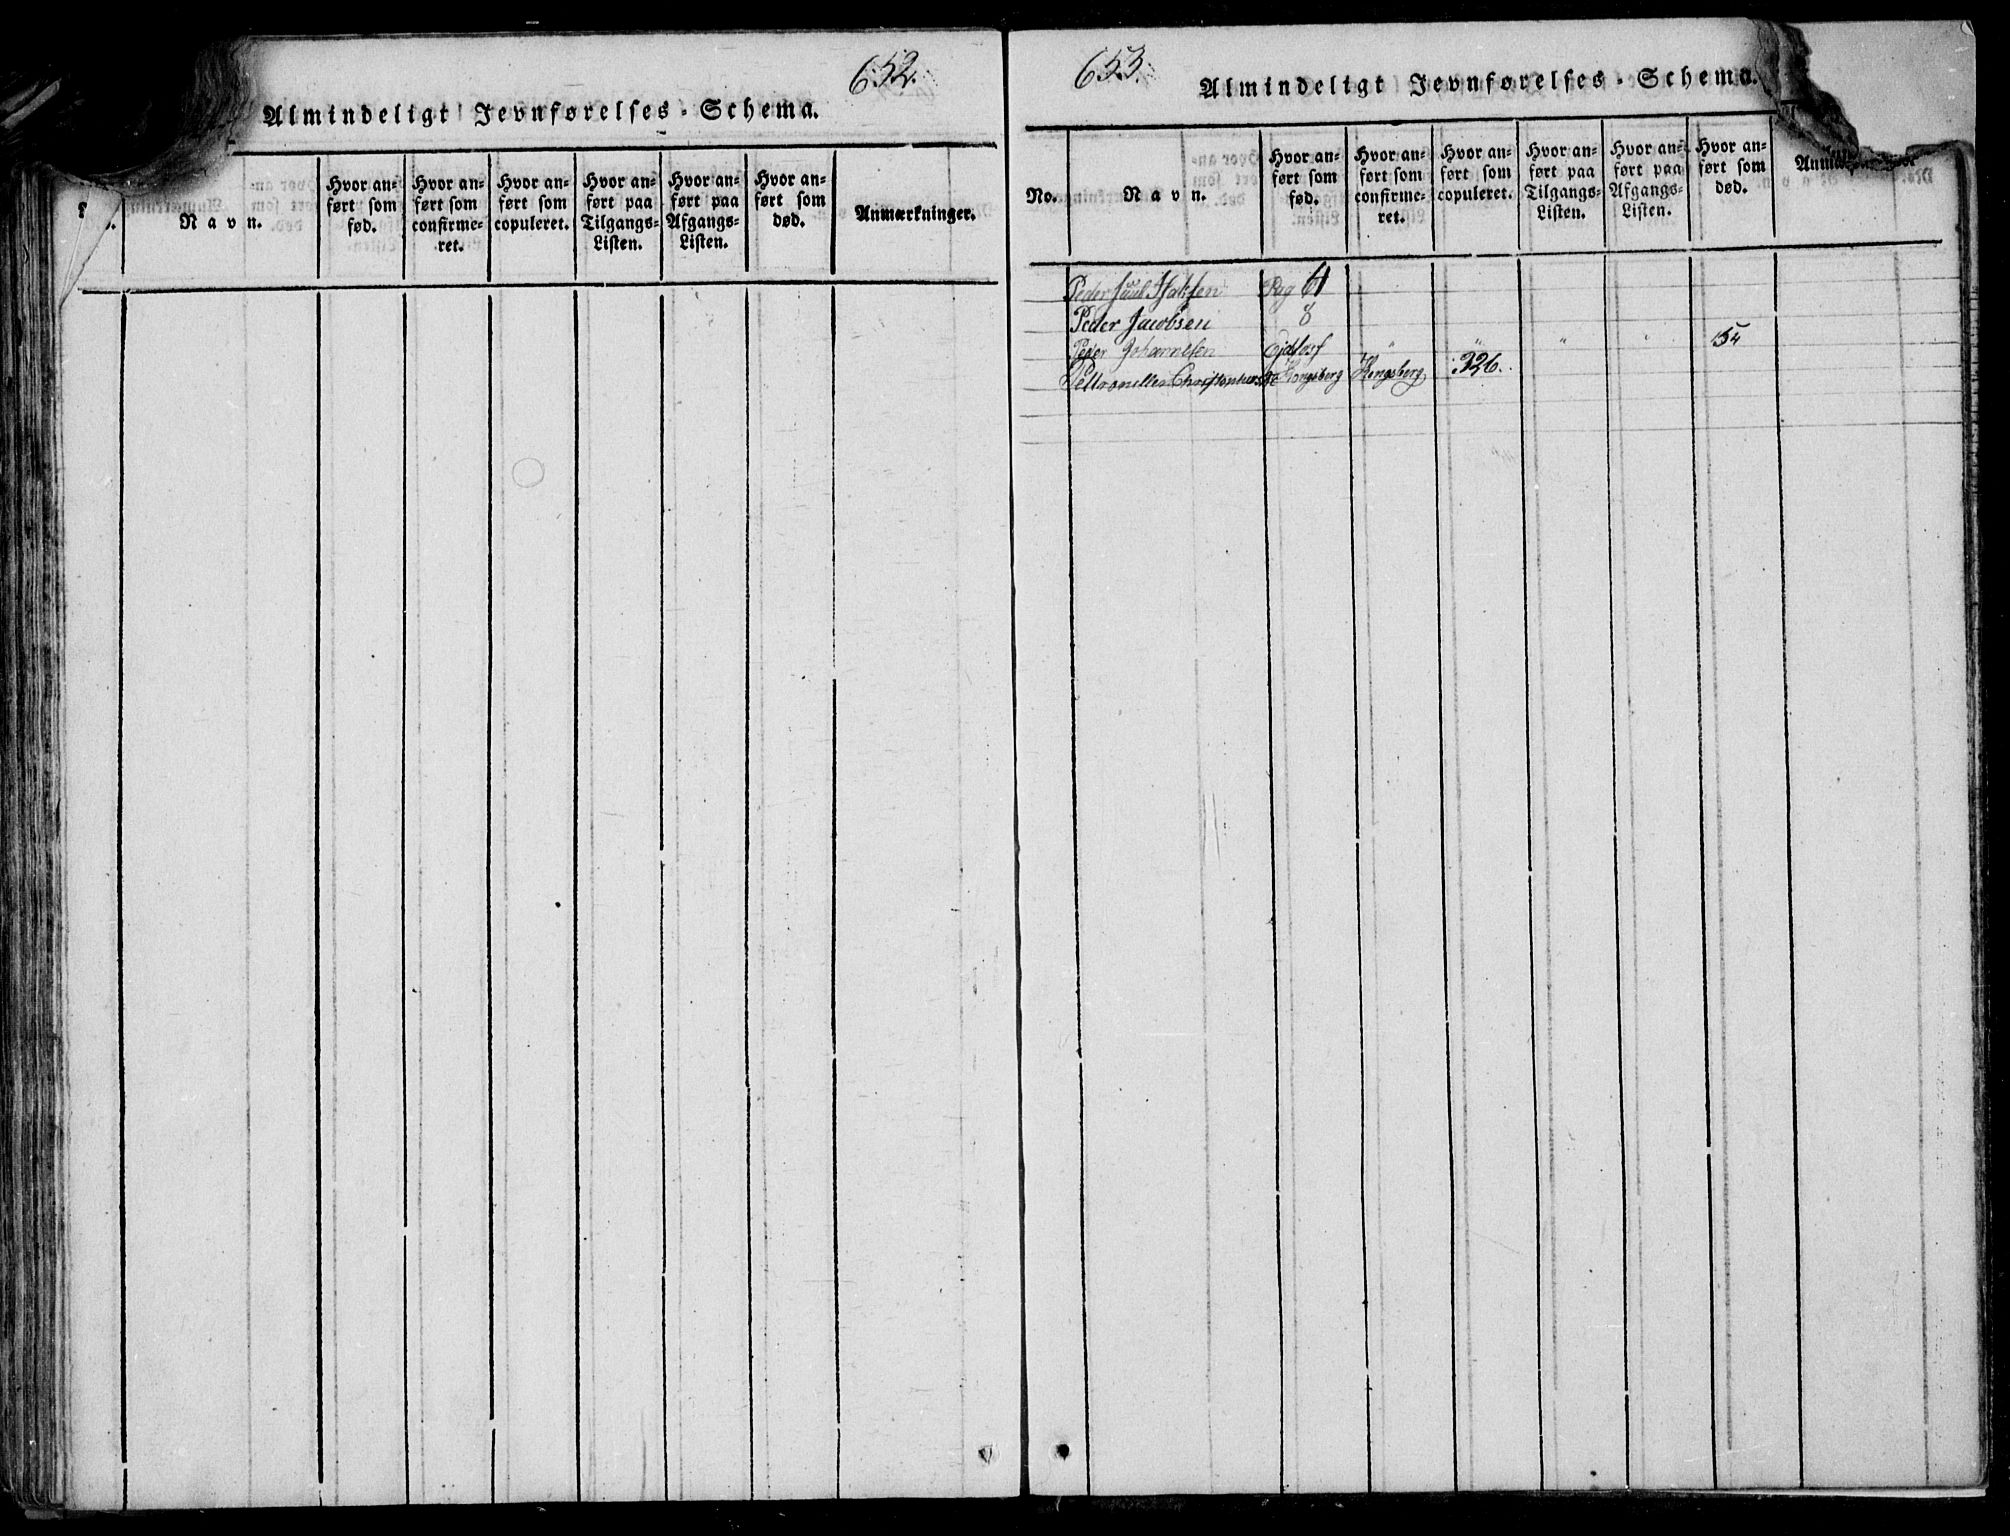 652.
Almindeligt Jevnførelses-Schema.
Navn.
Hvor anført som fød.
Hvor anført som confirmeret.
Hvor anført som copuleret.
Hvor anført paa Tilgangs-Listen.
Hvor anført paa Afgangs-Listen.
Hvor anført som død.
Anmærkninger.
653.
Almindeligt Jevnførelses-Schema.
No.
Navn.
Hvor anført som fød.
Hvor anført som confirmeret.
Hvor anført som copuleret.
Hvor anført paa Tilgangs-Listen.
Hvor anført paa Afgangs-Listen.
Hvor anført som død.
Peder Juul Pag 61
Peder Jacobsen 8
Peder Johannesen " " " " 154
Kongsberg Kongsberg 326.